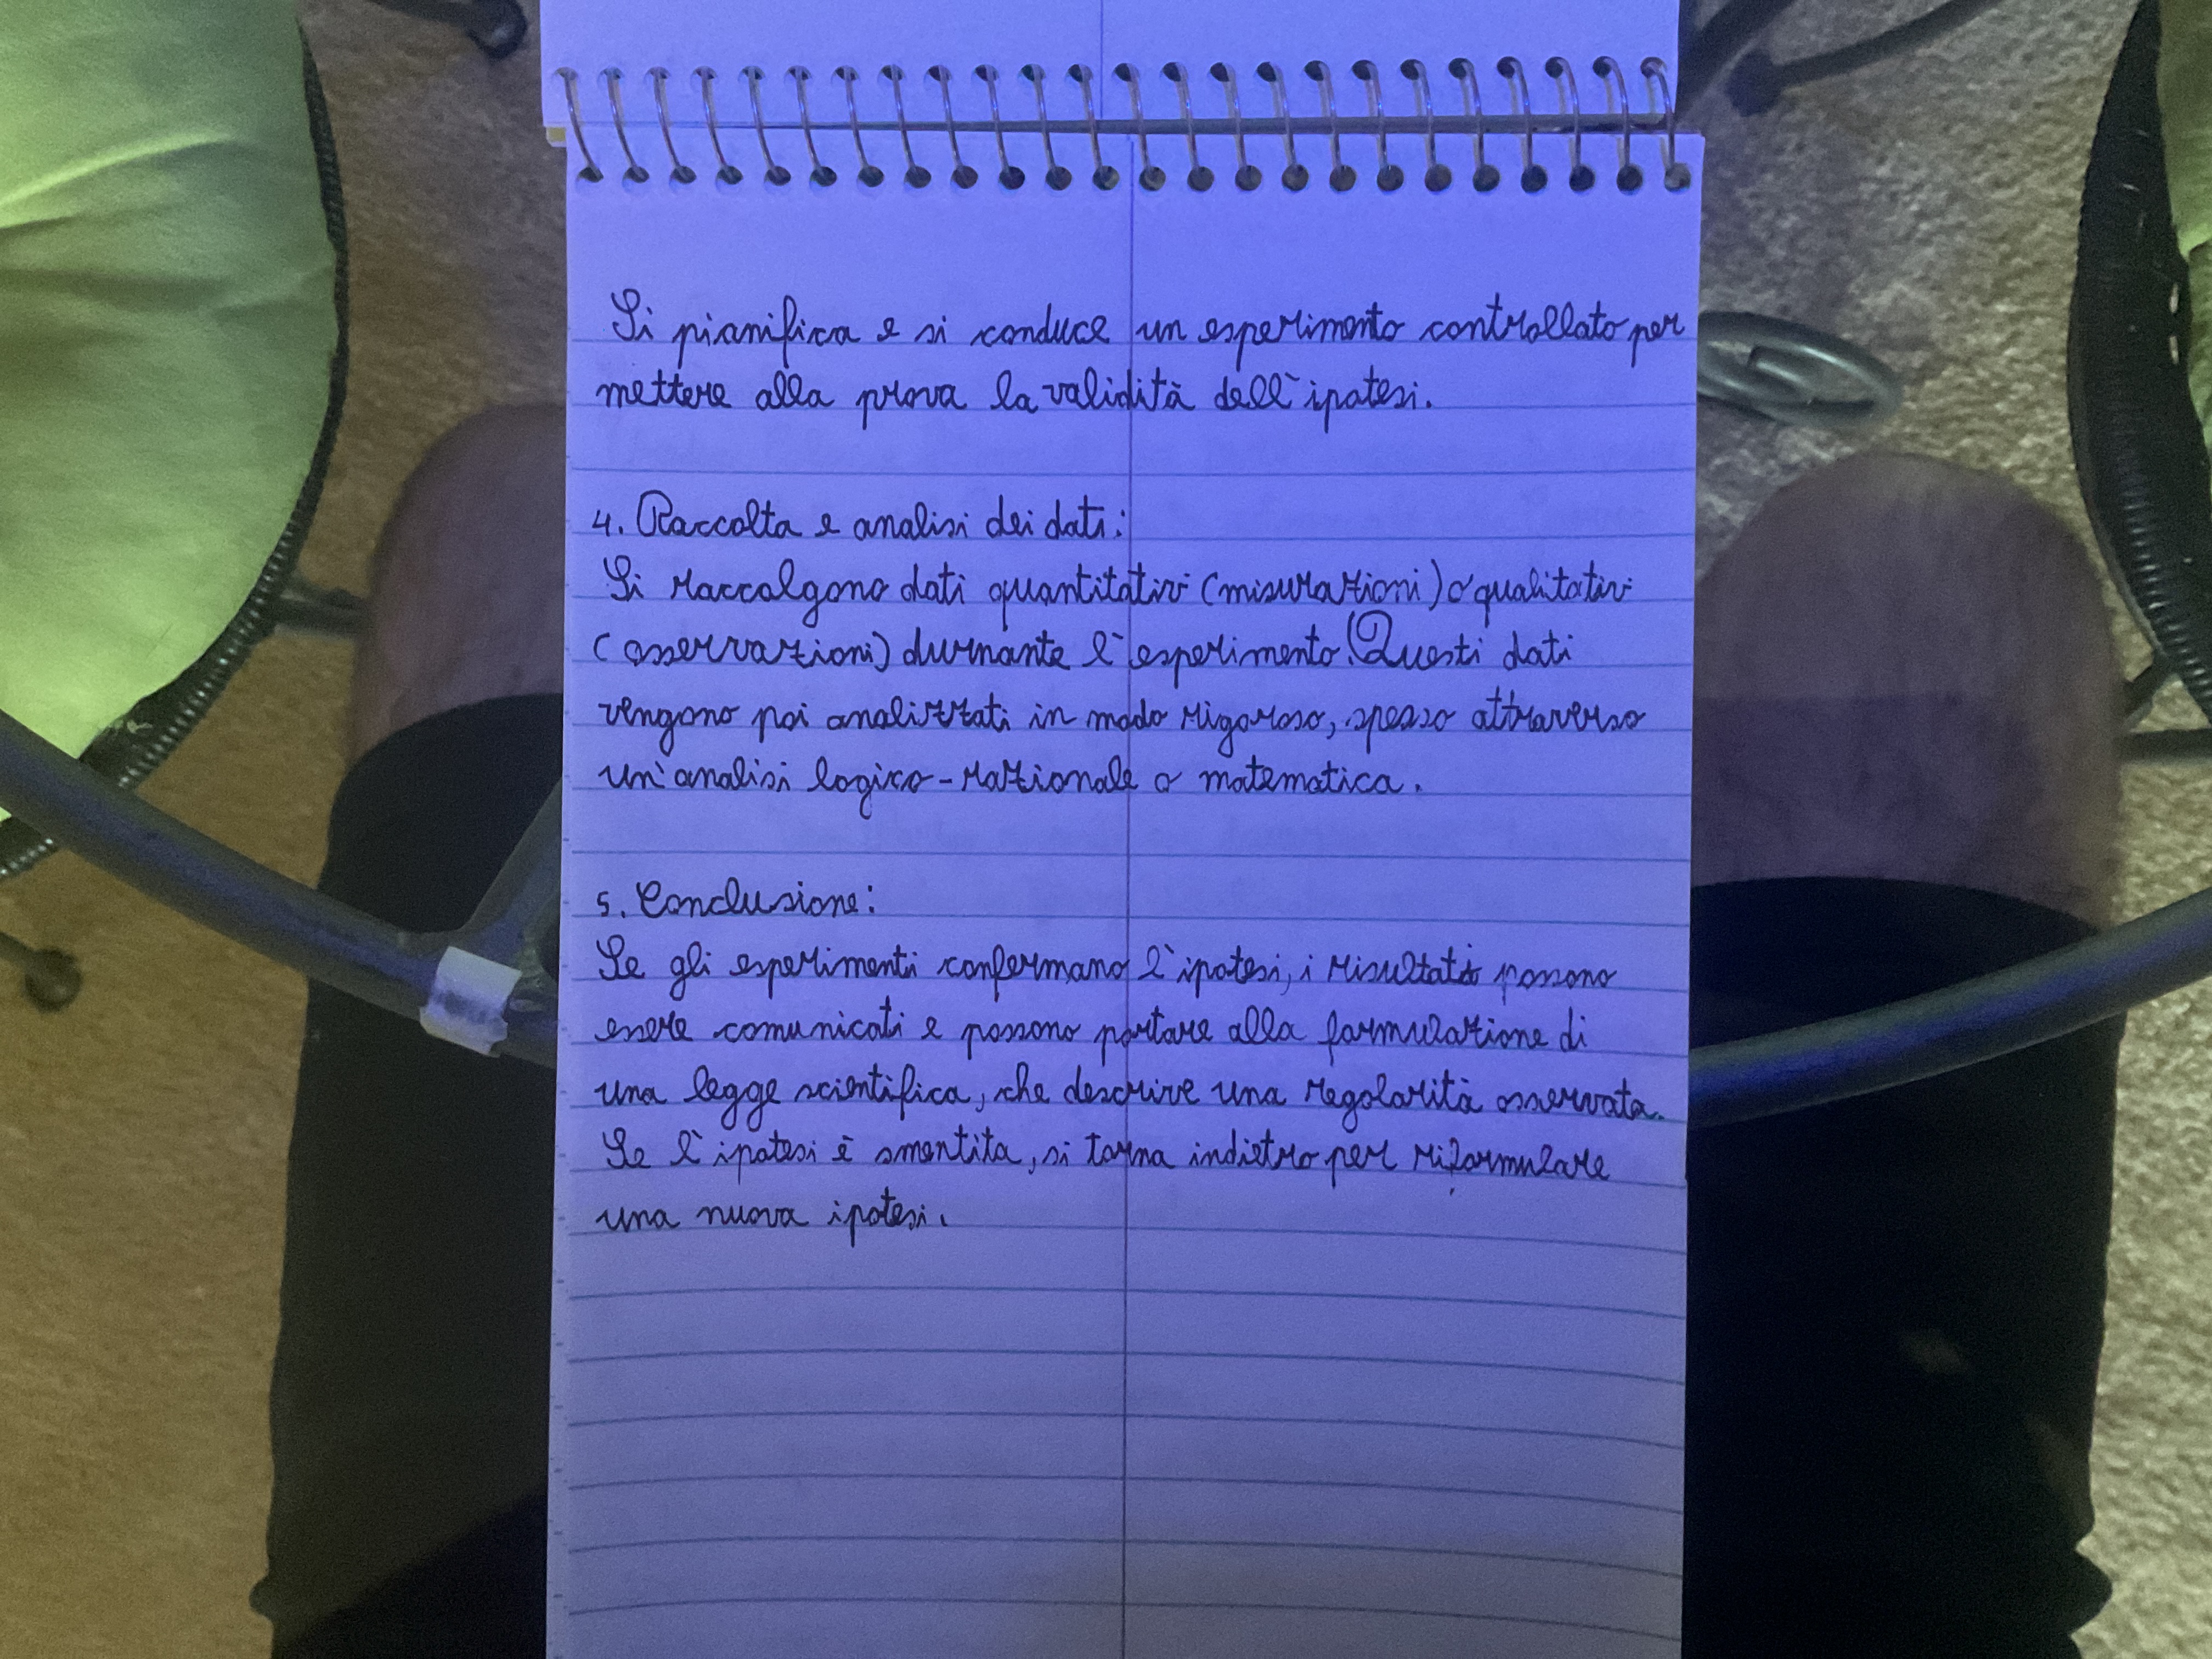 Si pianifica e si conduce un esperimento controllato per
mettere alla prova la validità dell'ipotesi.
4. Raccolta e analisi dei dati:
Si raccolgono dati quantitativi (misurazioni) o qualitativi
(osservazioni) durnante l'esperimento. Questi dati
vengono poi analizzati in modo rigoroso, spesso attraverso
un'analisi logico-razionale o matematica.
5. Conclusione:
Se gli esperimenti confermano l'ipotesi, i risultati possono
essere comunicati e possono portare alla formulazione di
una legge scientifica, che descrive una regolarità osservata.
Se l'ipotesi è smentita, si torna indietro per riformulare
una nuova ipotesi.